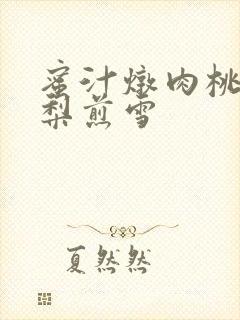 蜜汁燉肉桃
梨煎雪
夏然然